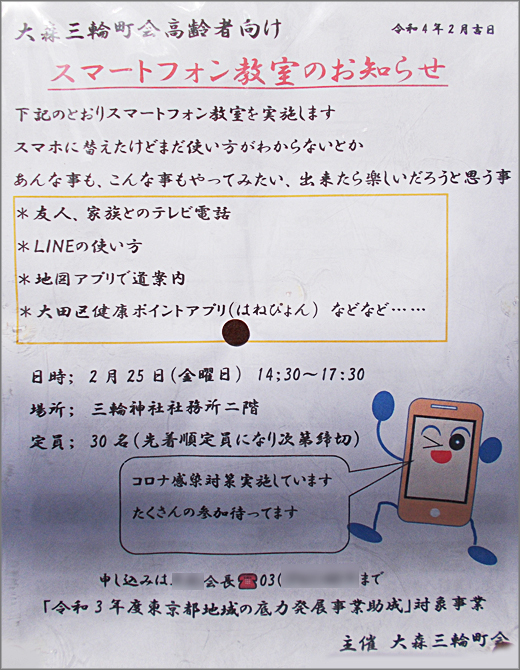 大森三輪町会高齢者向け
令和4年2月吉日
スマートフォン教室のお知らせ
下記のとおりスマートフォン教室を実施します
スマホに替えたけどまだ使い方がわからないとか
あんな事も、こんな事もやってみたい、出来たら楽しいだろうと思う事
＊友人、家族とのテレビ電話
＊LINEの使い方
＊地図アプリで道案内
＊大田区健康ポイントアプリ(はねぴょん) などなど……
日時; 2月25日(金曜日) 14;30～17:30
場所; 三輪神社社務所二階
定員; 30名(先着順定員になり次第締切)
コロナ感染対策実施しています
たくさんの参加待ってます
申し込みは 会長☎03( まで
「令和3年度東京都地域の底力発展事業助成」対象事業
主催 大森三輪町会